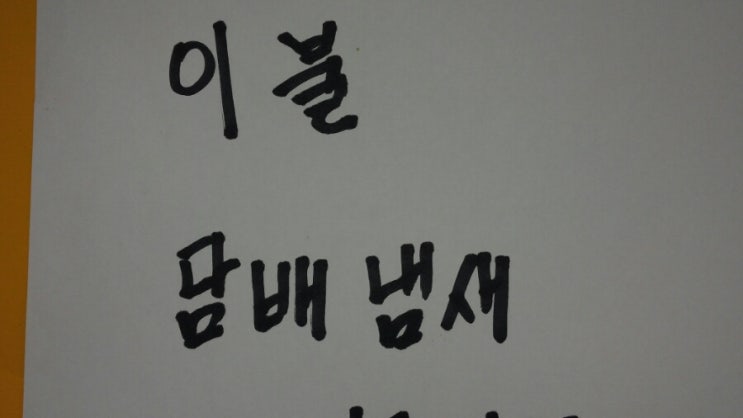 이불
담배 냄새